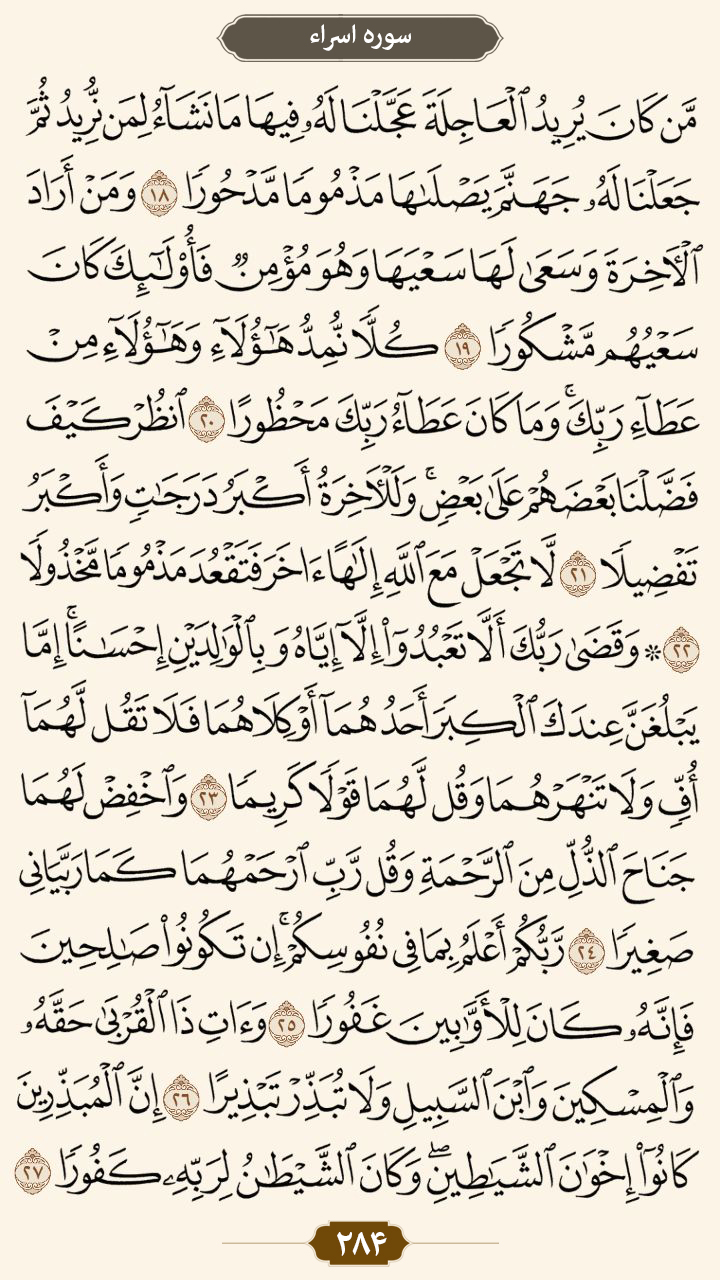 سوره اسراء
مَّن كَانَ يُرِيدُ ٱلْعَاجِلَةَ عَجَّلْنَا لَهُۥ فِيهَا مَا نَشَآءُ لِمَن نُّرِيدُ ثُمَّ
جَعَلْنَا لَهُۥ جَهَنَّمَ يَصْلَىٰهَا مَذْمُومًا مَّدْحُورًا ١٨ وَمَنْ أَرَادَ
ٱلْـَٔاخِرَةَ وَسَعَىٰ لَهَا سَعْيَهَا وَهُوَ مُؤْمِنٌ فَأُو۟لَـٰٓئِكَ كَانَ
سَعْيُهُم مَّشْكُورًا ١٩ كُلًّا نُّمِدُّ هَـٰٓؤُلَآءِ وَهَـٰٓؤُلَآءِ مِنْ
عَطَآءِ رَبِّكَ ۚ وَمَا كَانَ عَطَآءُ رَبِّكَ مَحْظُورًا ٢٠ ٱنظُرْ كَيْفَ
فَضَّلْنَا بَعْضَهُمْ عَلَىٰ بَعْضٍ ۚ وَلَلْـَٔاخِرَةُ أَكْبَرُ دَرَجَـٰتٍ وَأَكْبَرُ
تَفْضِيلًا ٢١ لَّا تَجْعَلْ مَعَ ٱللَّهِ إِلَـٰهًا ءَاخَرَ فَتَقْعُدَ مَذْمُومًا مَّخْذُولًا
٢٢ ۞ وَقَضَىٰ رَبُّكَ أَلَّا تَعْبُدُوٓا۟ إِلَّآ إِيَّاهُ وَبِٱلْوَٰلِدَيْنِ إِحْسَـٰنًا ۚ إِمَّا
يَبْلُغَنَّ عِندَكَ ٱلْكِبَرَ أَحَدُهُمَآ أَوْ كِلَاهُمَا فَلَا تَقُل لَّهُمَآ
أُفٍّ وَلَا تَنْهَرْهُمَا وَقُل لَّهُمَا قَوْلًا كَرِيمًا ٢٣ وَٱخْفِضْ لَهُمَا
جَنَاحَ ٱلذُّلِّ مِنَ ٱلرَّحْمَةِ وَقُل رَّبِّ ٱرْحَمْهُمَا كَمَا رَبَّيَانِى
صَغِيرًا ٢٤ رَّبُّكُمْ أَعْلَمُ بِمَا فِى نُفُوسِكُمْ ۚ إِن تَكُونُوا۟ صَـٰلِحِينَ
فَإِنَّهُۥ كَانَ لِلْأَوَّٰبِينَ غَفُورًا ٢٥ وَءَاتِ ذَا ٱلْقُرْبَىٰ حَقَّهُۥ
وَٱلْمِسْكِينَ وَٱبْنَ ٱلسَّبِيلِ وَلَا تُبَذِّرْ تَبْذِيرًا ٢٦ إِنَّ ٱلْمُبَذِّرِينَ
كَانُوٓا۟ إِخْوَٰنَ ٱلشَّيَـٰطِينِ ۖ وَكَانَ ٱلشَّيْطَـٰنُ لِرَبِّهِۦ كَفُورًا ٢٧
۲۸۴